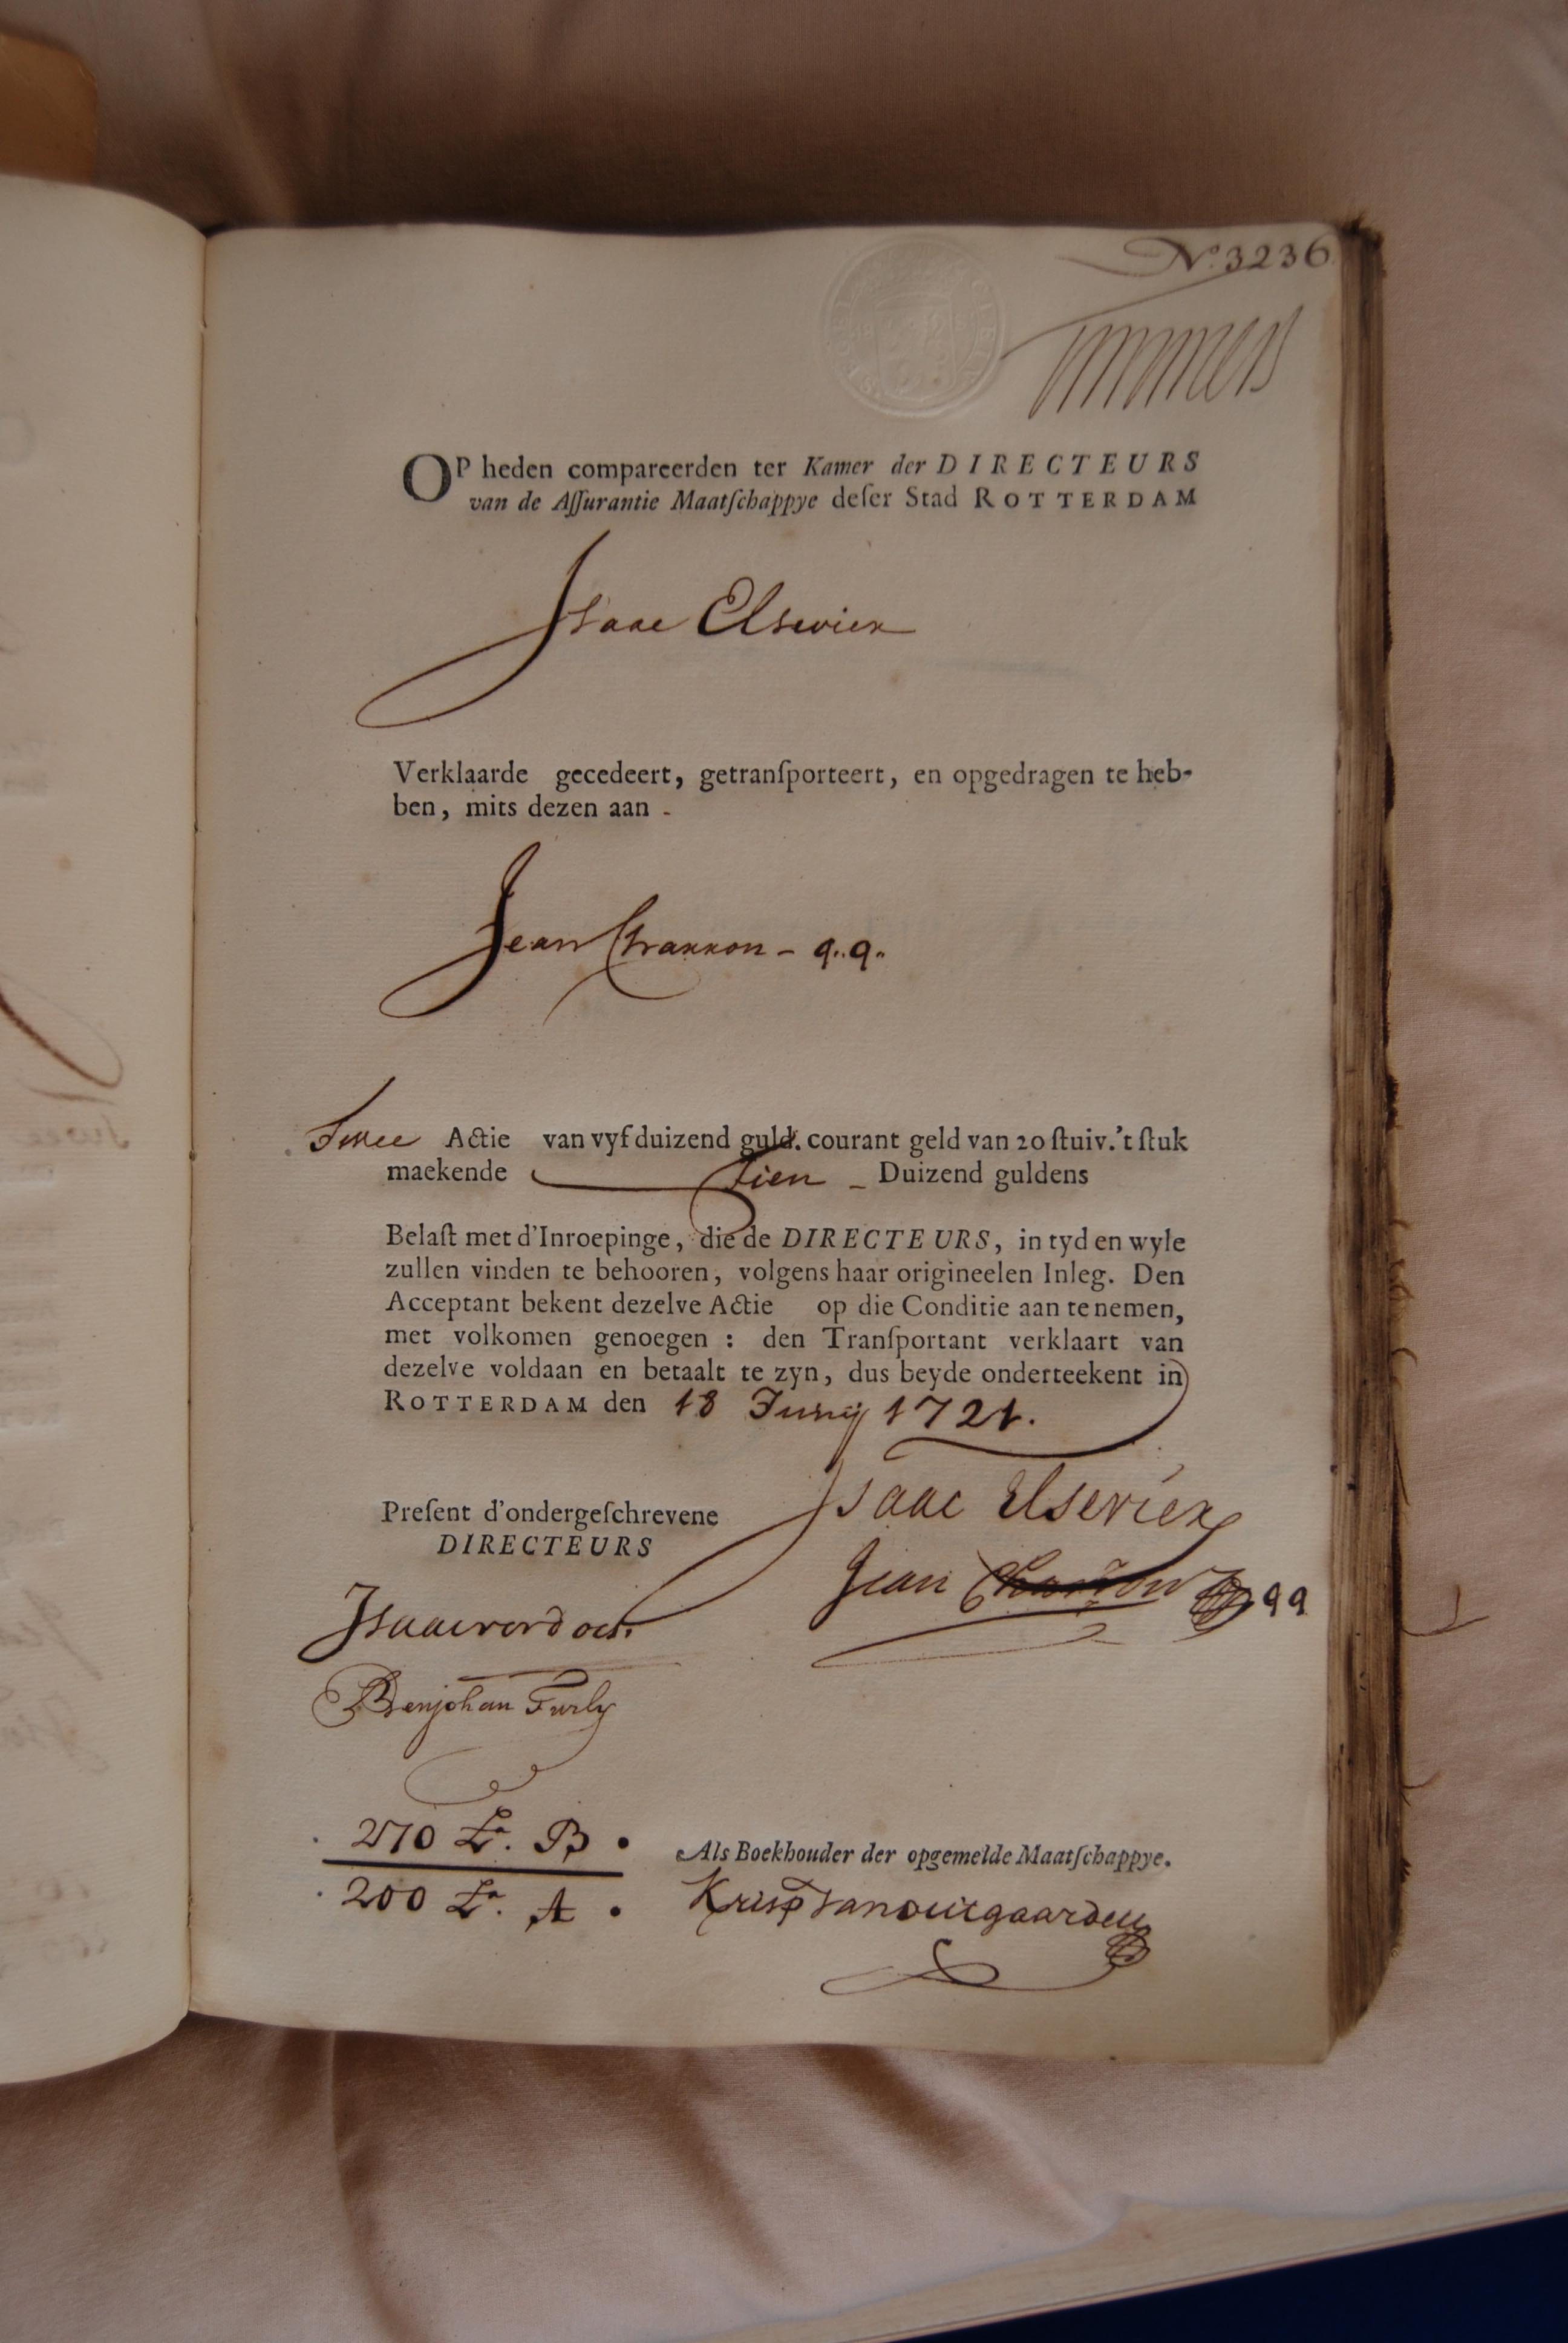 No. 3236
OP heden compareerden ter Kamer der DIRECTEURS
van de Aſſurantie Maatſchappye deſer Stad ROTTERDAM
Isaac Elsevier
Verklaarde gecedeert, getranſporteert, en opgedragen te heb-
ben, mits dezen aan -
Jean Charron - q.. q..
Twee Actie van vyf duizend guld. courant geld van 20 ſtuiv. 't ſtuk
maekende Tien _ Duizend guldens
Belaſt met d'Inroepinge, die de DIRECTEURS, in tyd en wyle
zullen vinden te behooren, volgens haar origineelen Inleg. Den
Acceptant bekent dezelve Actie op die Conditie aan te nemen,
met volkomen genoegen : den Tranſportant verklaart van
dezelve voldaan en betaalt te zyn, dus beyde onderteekent in
ROTTERDAM den 18 Junij 1721.
Isaac Elsevier
Preſent d'ondergeſchrevene
DIRECTEURS
Jean Charron qq
Benjohan Furly
270 La. B.
200 La. A.
Als Boekhouder der opgemelde Maatſchappye.